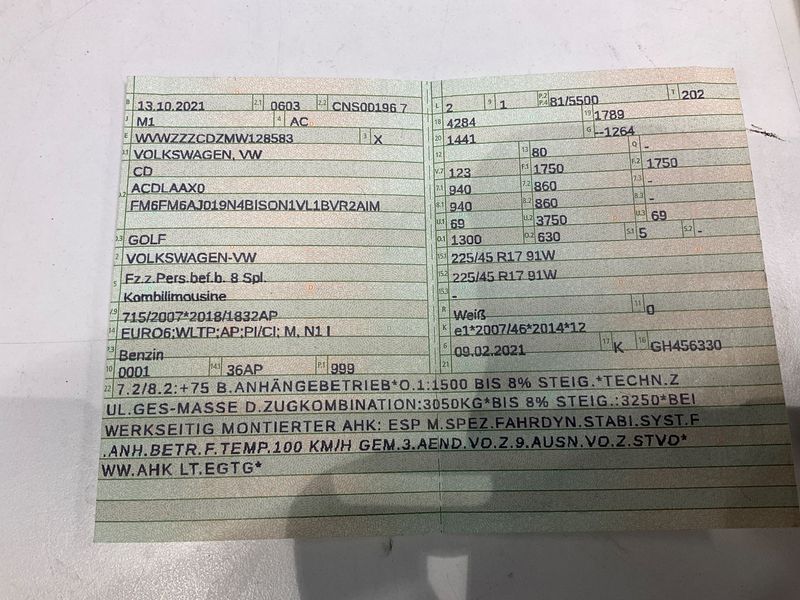 B 13.10.2021 2.1 0603 2.2 CNS00196 7
J M1 4 AC
E WVWZZZCDZMW128583 3 X
VOLKSWAGEN, VW
CD
ACDLAAX0
FM6FM6AJ019N4BISON1VL1BVR2AIM
D.3 GOLF
2 VOLKSWAGEN-VW
5 Fz.z.Pers.bef.b. 8 Spl.
Kombilimousine
V.9 715/2007*2018/1832AP
14 EURO6;WLTP;AP;PI/CI; M, N1 I
P.3 Benzin
10 0001 14.1 36AP P.1 999
L 2 9 1 P.2 P.4 81/5500 T 202
18 4284 19 1789
20 1441 G --1264
12 13 80 Q -
V.7 123 F.1 1750 F.2 1750
7.1 940 7.2 860 7.3 -
8.1 940 8.2 860 8.3 -
U.1 69 U.2 3750 U.3 69
O.1 1300 O.2 630 S.1 5 S.2 -
15.1 225/45 R17 91W
15.2 225/45 R17 91W
15.3 -
R Weiß 11 0
K e1*2007/46*2014*12
6 09.02.2021 17 K 16 GH456330
21
22 7.2/8.2:+75 B.ANHÄNGEBETRIEB*O.1:1500 BIS 8% STEIG.*TECHN.Z
UL.GES-MASSE D.ZUGKOMBINATION:3050KG*BIS 8% STEIG.:3250*BEI
WERKSEITIG MONTIERTER AHK: ESP M.SPEZ.FAHRDYN.STABI.SYST.F
.ANH.BETR.F.TEMP.100 KM/H GEM.3.AEND.VO.Z.9.AUSN.VO.Z.STVO*
WW.AHK LT.EGTG*